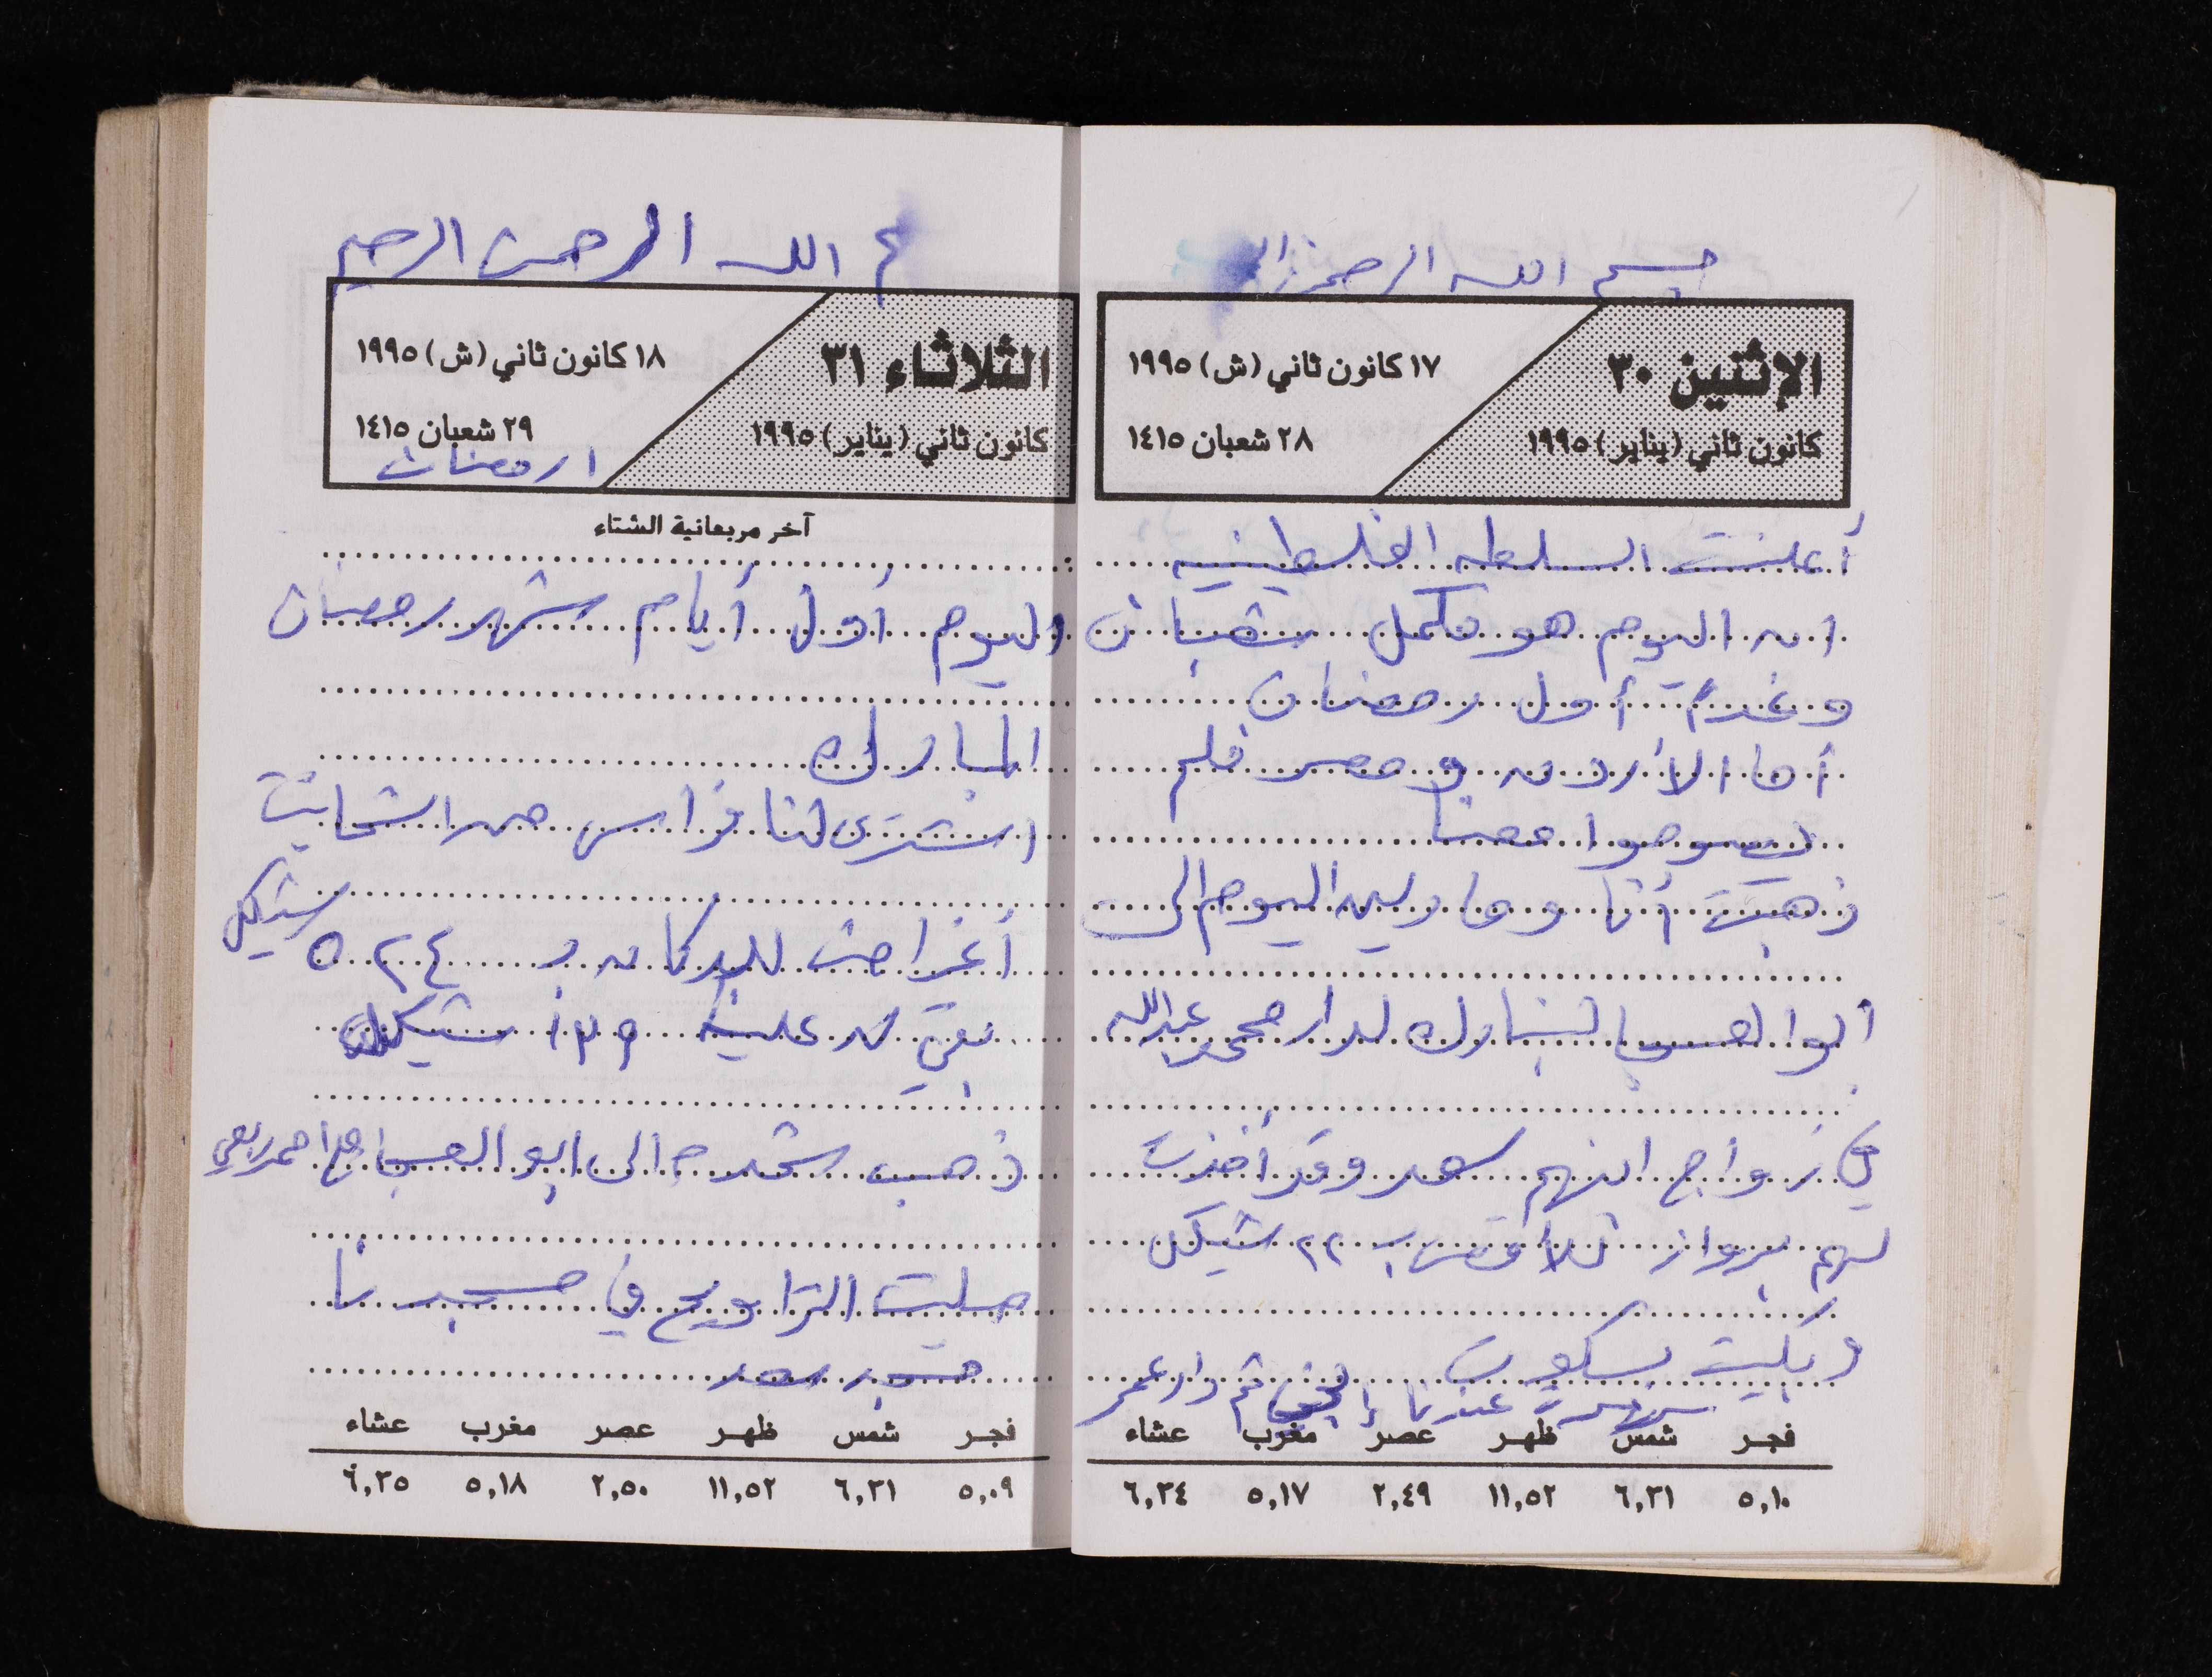 بسم الله الرحمن
الإثنين ٣٠
١٧ كانون ثاني (ش) ١٩٩٥
كانون ثاني (يناير) ١٩٩٥
٢٨ شعبان ١٤١٥
أعلنت السلطه الفلسطينيه
ان اليوم هو مكمل شعبان
وغداً أول رمضان
أما الأردن ومصر فلم
يصوموا معنا
ذهبت أنا ومارلين اليوم الى
ابوا لعسجا لنبارك لدار محمد عبدالله
في زواج ابنهم سعد وقد أخذت
لهم برواز للأقصى ب ٢٢ شيكل
وبكيت بسكوت
سهرت عندنا إلهي ثم دار عمر
فجر شمس ظهر عصر مغرب عشاء
٥,١٠ ٦,٣١ ١١,٥٢ ٢,٤٩ ٥,١٧ ٦,٣٤
م الله الرحمن الرحيم
الثلاثاء ٣١
١٨ كانون ثاني (ش) ١٩٩٥
كانون ثاني (يناير) ١٩٩٥
٢٩ شعبان ١٤١٥
١ رمضان
آخر مربعانية الشتاء
اليوم أول أيام شهر رمضان
المبارك
اشترى لنا فراس من
أغراض للدكان ب ٥٢٤ شيكل
بقي له علينا ١٣٩ شيكل
ذهب الى ابو العسجا مع احمد ربعي
صليت التراويح في مسجدنا
فجر شمس ظهر عصر مغرب عشاء
٥,٠٩ ٦,٣١ ١١,٥٢ ٢,٥٠ ٥,١٨ ٦,٣٥